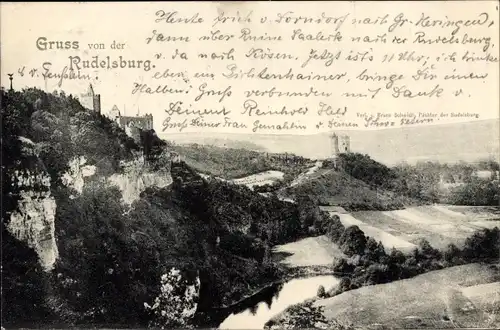 Gruss von der
Rudelsburg.
Heute früh v. Dorndorf nach Gr. Heringen,
dann über Ruine Saaleck nach der Rudelsburg,
u. da nach Kösen. Jetzt ists 11 Uhr, ich trinke
eben ein Lichtenhainer, bringe Dir einen
Halben! Gruß verbunden mit Dank v.
Deinem Reinhold
Gruß Deiner Frau u. Deinen
Verl. v. Franz Schmidt, Pächter der Rudelsburg